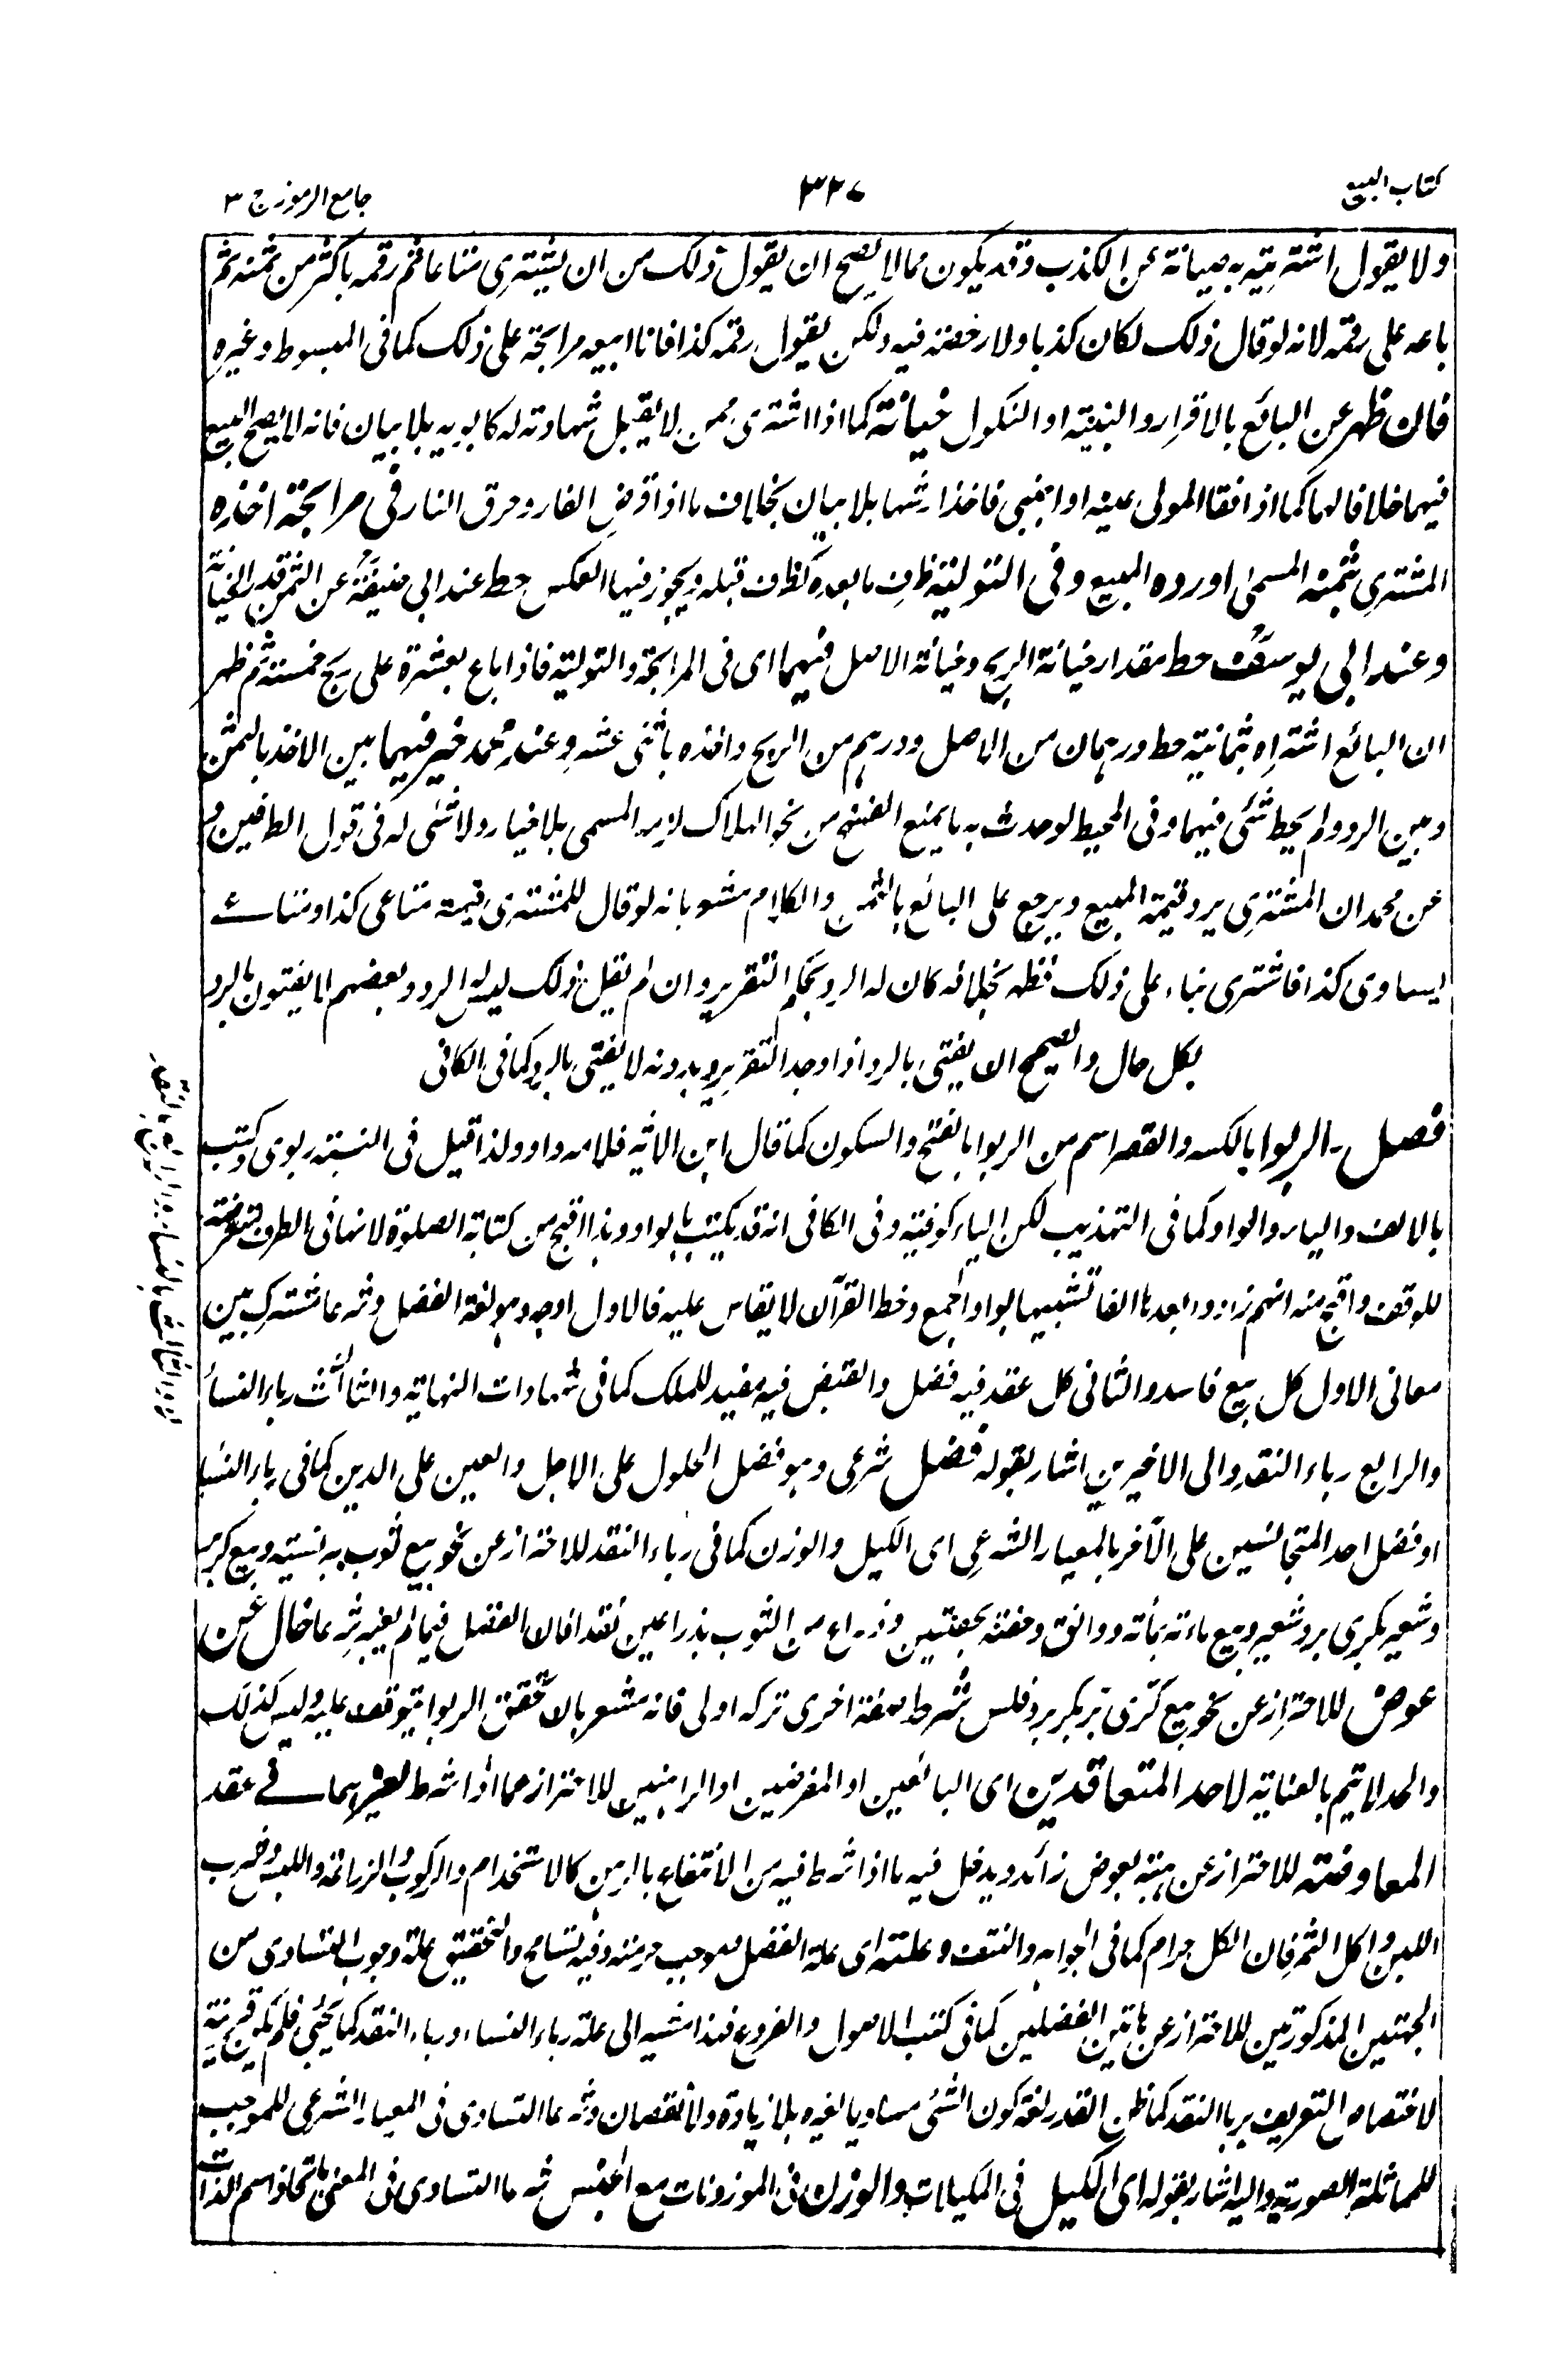 كتاب البيع
٣٢٠
جامع الرموز ج ٣
ولا يقول اشتريته به صيانة عن الكذب وقد يكون مما لا يصح ان يقول ذلك من ان يشترى متاعا فثم رقمه باكثر من ثمنه ثم
باعه على رقمه لانه لو قال ذلك لكان كذبا ولا رخصة فيه ولكن يقول رقمه كذا فانا ابيعه مرابحة على ذلك كما فى المبسوط وغيره
فان ظهر عن البائع بالاقرار والبينة او النكول خيانة كما اذا اشترى ممن لا يقبل شهادته له كابويه بلا بيان فانه لا يصح البيع
فيهما خلافا لهما كما اذا فقأ المولى عينه او اجنبى فاخذ ارشها بلا بيان بخلاف ما اذا قرض الفار وحرق النار فى مرابحة اخذه
المشترى بثمنه المسمى او رده المبيع وفى التولية ظرف ما بعده كظرف قبله ويجوز فيها العكس حط عند ابى حنيفة عن الثمن قدر الخيانة
وعند ابى يوسف حط مقدار خيانة الربح وخيانة الاصل فيهما اى فى المرابحة والتولية فاذا باع بعشرة على ربح خمسة ثم ظهر
ان البائع اشتراه بثمانية حط درهمان من الاصل ودرهم من الربح واخذه باثنى عشر وعند محمد خير فيهما بين الاخذ بالثمن
وبين الرد ولم يحط شئى فيهما وفى المحيط لو حدث به ما يمنع الفسخ من نحو الهلاك لزمه المسمى بلا خيار ولا شئى له فى قول الطرفين و
عن محمد ان المشترى يرد قيمة المبيع ويرجع على البائع بالثمن والكلام مشعر بانه لو قال للمشترى قيمة متاعى كذا ومتاعى
يساوى كذا فاشترى بناء على ذلك فظهر بخلافه كان له الرد بحكم التقرير وان لم يقل ذلك ليس له الرد وبعضهم لا يفتون بالرد
بكل حال والصحيح ان يفتى بالرد اذا وجد التقرير وبدونه لا يفتى بالرد كما فى الكافى
فصل ـ الربوا بالكسر والقصر اسم من الربوا بالفتح والسكون كما قال ابن الاثير فلامه واو ولذا قيل فى النسبة ربوى وكتب
بالالف والياء والواو كما فى التهذيب لكن الياء كوفية وفى الكافى انه قد يكتب بالواو وهذا اقبح من كتابة الصلوة لانها فى الطرف متعرضة
للوقف واقبح منه انهم زادوا بعدها الفا تشبيها بواو الجمع وخط القرآن لا يقاس عليه فالاول اوجه وهو لغة الفضل وشرعا مشترك بين
معانى الاول كل بيع فاسد والثانى كل عقد فيه فضل والقبض فيه مفيد للملك كما فى شهادات النهاية والثالث رباء النساء
والرابع رباء النقد والى الاخيرين اشار بقوله فضل شرعى وهو فضل الحلول على الاجل والعين على الدين كما فى رباء النساء
او فضل احد المتجانسين على الآخر بالمعيار الشرعى اى الكيل والوزن كما فى رباء النقد للاحتراز عن نحو بيع ثوب به نسيئة وبيع كر بر
وشعير بكرى بر وشعير وبيع مائة بمائة ودانق وحفنة بحفنتين وذراع من الثوب بذراعين نقدا فان الفضل فيها لم يعتبر شرعا خال عن
عوض للاحتراز عن نحو بيع كرى بر بكر بر وفلس شرط صفة اخرى تركه اولى فانه مشعر بان تحقق الربوا يتوقف عليه وليس كذلك
والحد لا يتم بالعناية لاحد المتعاقدين اى البائعين او المقرضين او الراهنين للاحتراز عما اذا شرط لغيرهما فى عقد
المعاوضة للاحتراز عن هبة بعوض زائد ويدخل فيه ما اذا شرط فيه من الانتفاع بالرهن كالاستخدام والركوب والزراعة واللبس وشرب
اللبن واكل الثمر فان الكل حرام كما فى الجواهر والنتف وعلته اى علة الفضل الموجب حرمته وفيه تسامح والتحقيق علة وجوب التساوى من
الجهتين المذكورتين للاحتراز عن هاتين الفضلين كما فى كتب الاصول والفروع فهذا مشير الى علة رباء النساء ورباء النقد كما يجئى فلم يكن قرينة
لاختصاص التعريف بربا النقد كما ظن القدر لغة كون الشئى مساويا لغيره بلا زيادة ولا نقصان وشرعا التساوى فى المعيار الشرعى الموجب
للمماثلة الصورية واليه اشار بقوله اى الكيل فى المكيلات والوزن فى الموزونات مع الجنس شرعا التساوى فى المعنى باتحاد اسم الذات